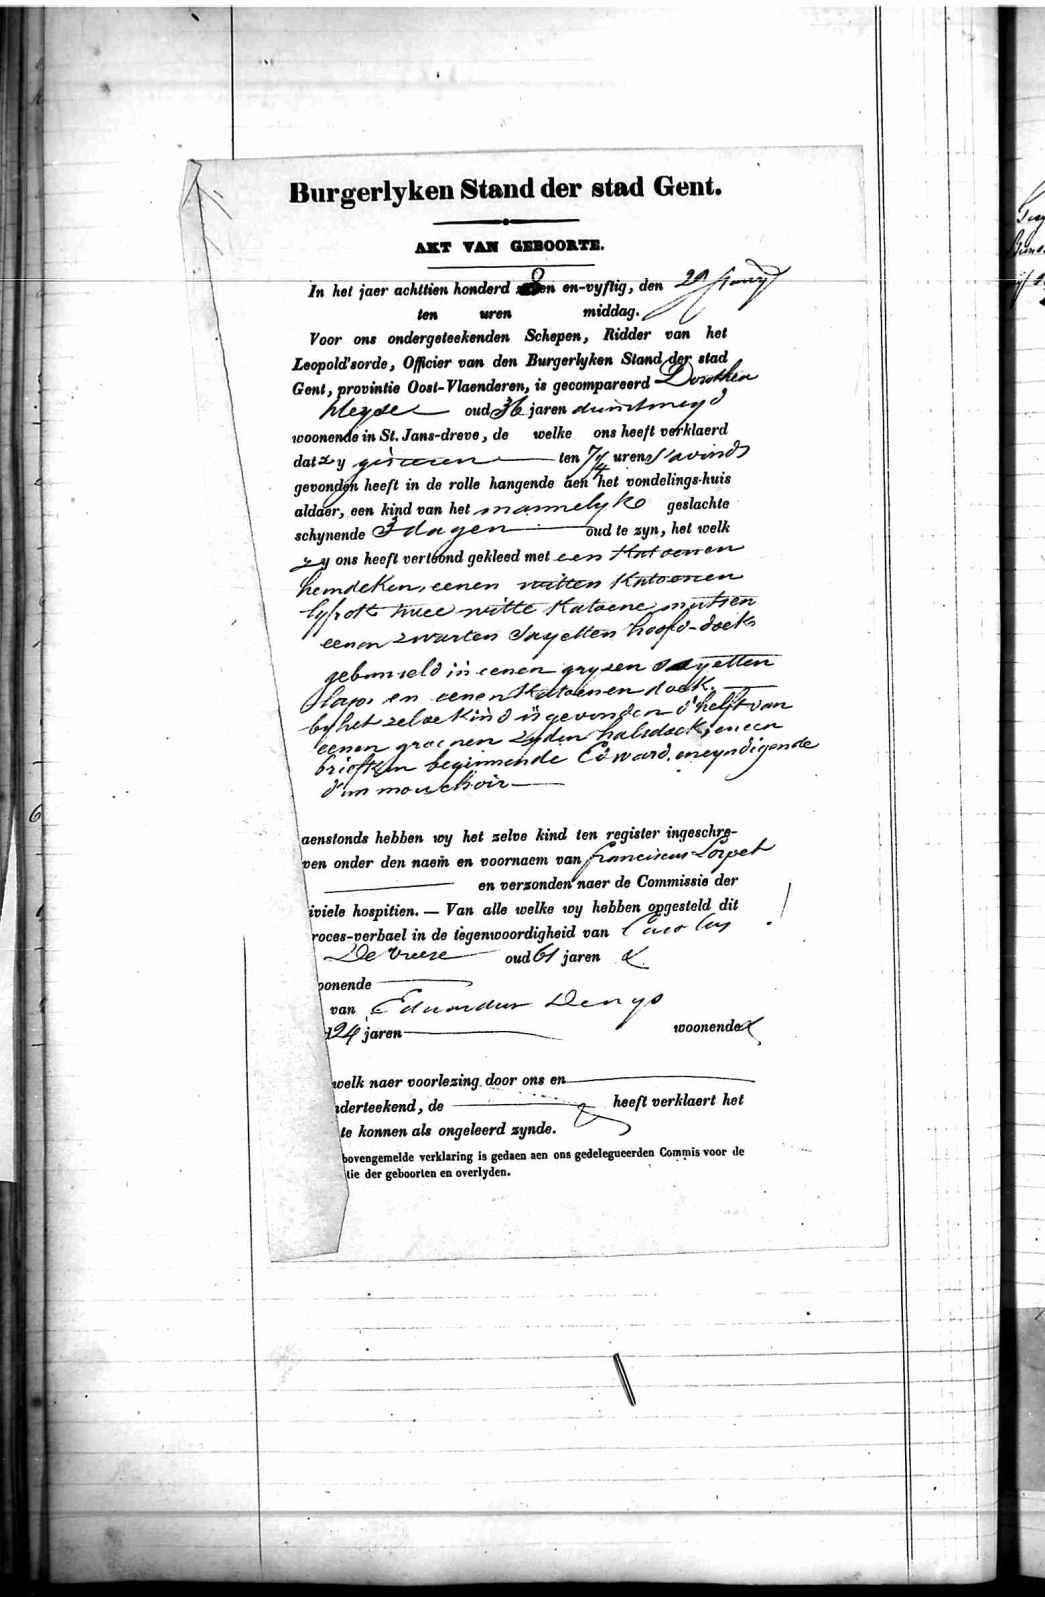 Burgerlyken Stand der stad Gent.
AKT VAN GEBOORTE.
In het jaer achttien honderd 8 en-vyftig, den 29
ten uren middag.
Voor ons ondergeteekenden Schepen, Ridder van het
Leopold'sorde, Officier van den Burgerlyken Stand der stad
Gent, provintie Oost-Vlaenderen, is gecompareerd Dorothea
oud 36 jaren dienstmeyd
woonende in St. Jans-dreve, de welke ons heeft verklaerd
dat zy gisteren ten 7¾ uren s'avinds
gevonden heeft in de rolle hangende aen het vondelings-huis
aldaer, een kind van het mannelyk geslachte
schynende 3 dagen oud te zyn, het welk
zy ons heeft vertoond gekleed met een Katoenen
hemdeken, eenen witten Katoenen
lyfrok twee witte Katoene mutsen
eenen zwarten Sayetten hoofd-doek
gebunseld in eenen gryzen Sayetten
en eenen Katoenen doek.
by het zelve Kind is gevonden d'helft van
eenen groenen zyden halsdoek, en een
briefken beginnende Edward, en eyndigende
d'un mouchoir
aenstonds hebben wy het zelve kind ten register ingeschre-
ven onder den naem en voornaem van franciscus Lorpet
en verzonden naer de Commissie der
iviele hospitien. — Van alle welke wy hebben opgesteld dit
roces-verbael in de tegenwoordigheid van Carolus
De Vreese oud 61 jaren
oonende
van Eduardus Denys
24 jaren woonende
welk naer voorlezing door ons en
derteekend, de heeft verklaert het
te konnen als ongeleerd zynde.
bovengemelde verklaring is gedaen aen ons gedelegueerden Commis voor de
tie der geboorten en overlyden.